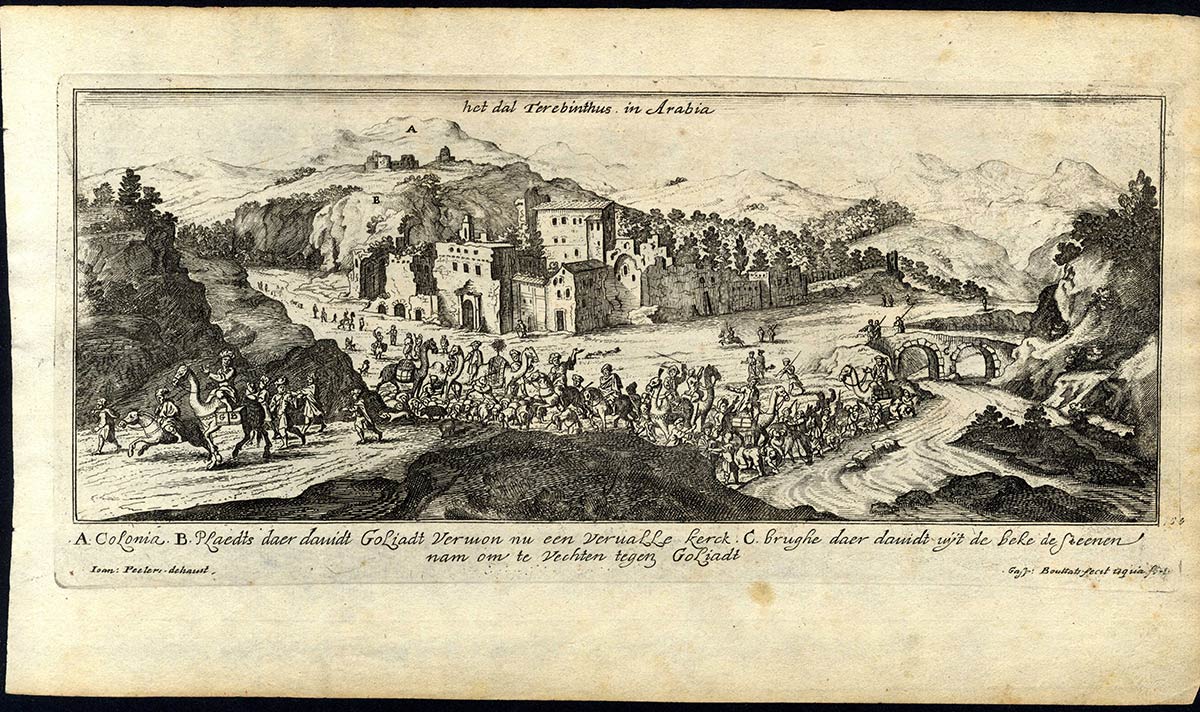 het dal Terebinthus. in Arabia
A
B
.A. Colonia. B. Plaedts daer davidt Goliadt Verwon nu een vervalle kerck. C. brughe daer davidt uÿt de beke de steenen
nam om te vechten tegen Goliadt
Ioan: Peeters. delineavit.
Gasp: Bouttats fecit aqua